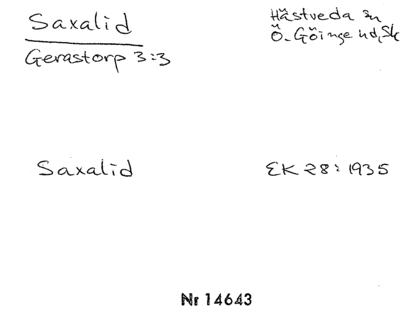 Saxalid
Hästveda sn
Ö. Göinge hd, Sk
Gerastorp 3:3
Saxalid
EK 28: 1935
Nr 14643